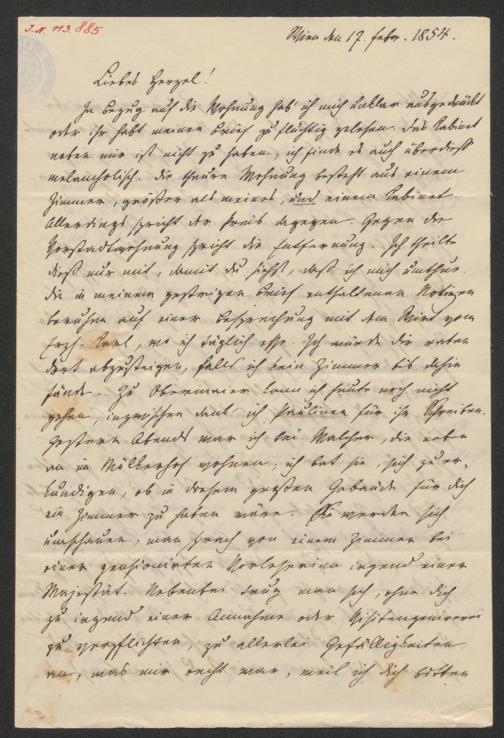 J.N. 113.885
Wien den 17. Febr. 1854.
Liebes Herzel!
In Bezug auf die Wohnung hab' ich mich unklar ausgedrückt
oder ihr habt meinen Brief zu flüchtig gelesen. Das Kabinet
neben mir ist nicht zu haben, ich finde es auch überdieß
melancholisch. Die theure Wohnung besteht aus einem
Zimmer, größer als meines, und einem Kabinet.
Allerdings spricht der Preis dagegen. Gegen die
Vorstadtwohnung spricht die Entfernung. Ich theilte
dieß nur mit, damit du siehst, daß ich mich umthue.
Die in meinem gestrigen Brief enthaltenen Notizen
beruhen auf einer Besprechung mit dem Wirt vom
Erzh. Karl, wo ich täglich esse. Ich würde dir rathen
dort abzusteigen, falls ich kein Zimmer bis dahin
fände. Zu Obermaier kann ich heute noch nicht
gehen, inzwischen dank' ich Paulinen für ihr Schreiben.
Gestern Abends war ich bei Walcher, die neben
an im Mölkerhof wohnen; ich bat sie, sich zu er-
kundigen, ob in diesem großen Gebäude für dich
ein Zimmer zu haben wäre. Sie werden sich
umschauen; man sprach von einem Zimmer bei
einer pensionirten Vorleserin irgend einer
Majestät. Nebenbei trug man sich, ohne dich
zu irgend einer Annahme oder Visitengeniererei
zu verpflichten, zu allerlei Gefälligkeiten
an, was mir recht war, weil ich dich bitten